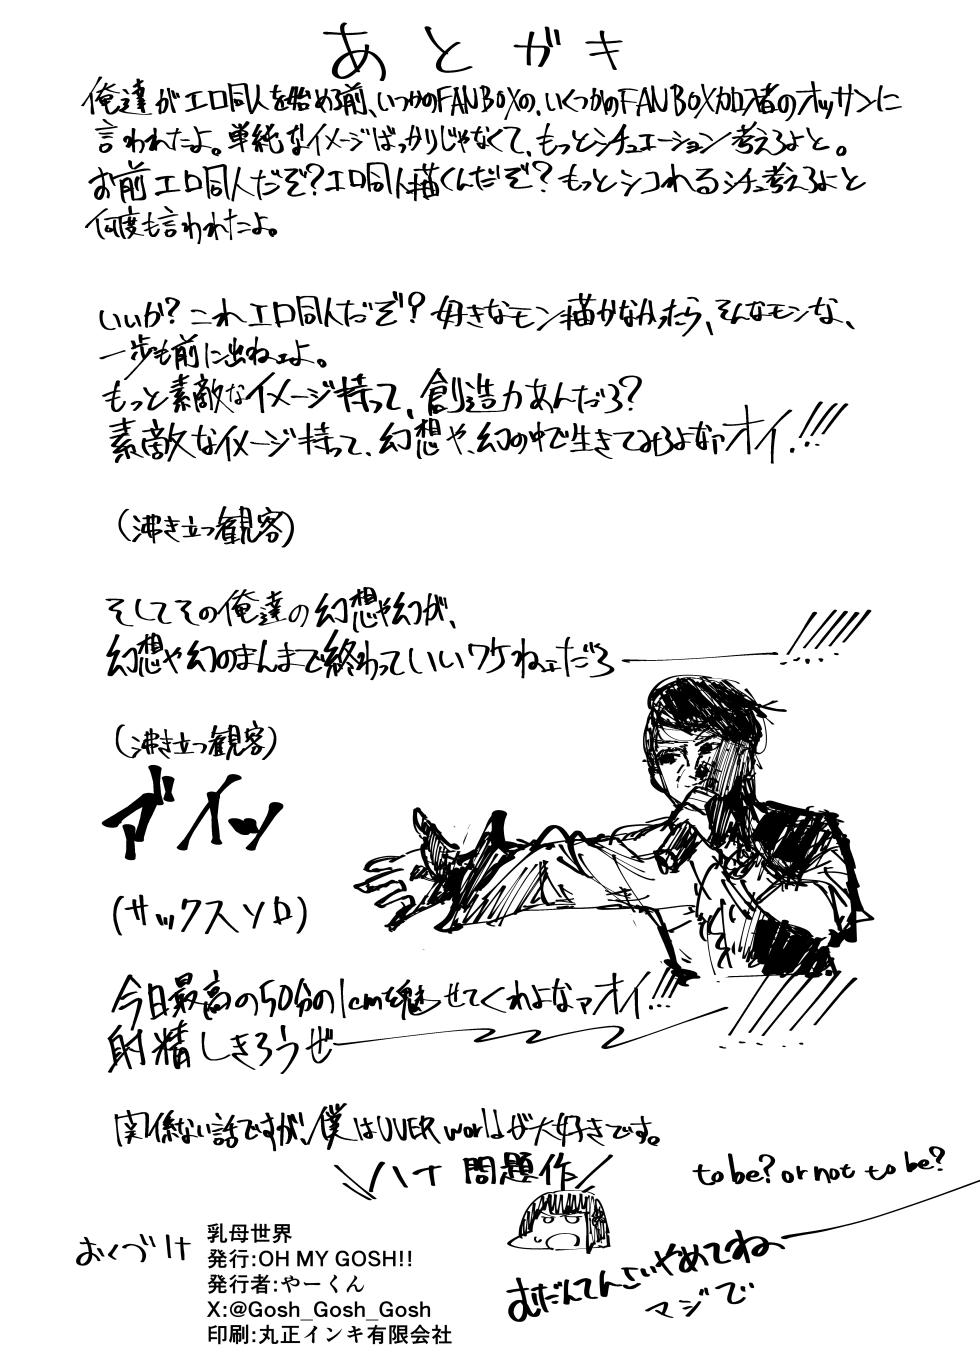 あとがき
俺達がエロ同人を始める前、いつかのFANBOXの、いくつかのFANBOX加入者のオッサンに
言われたよ。単純なイメージばっかりじゃなくて、もっとシチュエーション考えろよと。
お前エロ同人だぞ?エロ同人描くんだぞ?もっとシコれるシチュ考えろよと
何度も言われたよ。
いいか?これエロ同人だぞ?好きなモン描かなかったら、そんなモンな、
一歩も前に出ねェよ。
もっと素敵なイメージ持って、創造力あんだろ?
素敵なイメージ持って、幻想や、幻の中で生きてみろよなァオイ!!!
(沸き立つ観客)
そしてその俺達の幻想や幻が、
幻想や幻のまんまで終わっていいワケねェだろ――!!!!!
(沸き立つ観客)
アイッ
(サックスソロ)
今日最高の50分の1cmを魅せてくれよなァオイ!!!
射精しきろうぜ――!!!!!
関係ない話ですが、僕はUVERworldが大好きです。
\ハナ問題作/
to be? or not to be?
おくづけ
乳母世界
発行:OH MY GOSH!!
発行者:やーくん
X:@Gosh_Gosh_Gosh
印刷:丸正インキ有限会社
むだんてんさいやめてねー
マジで